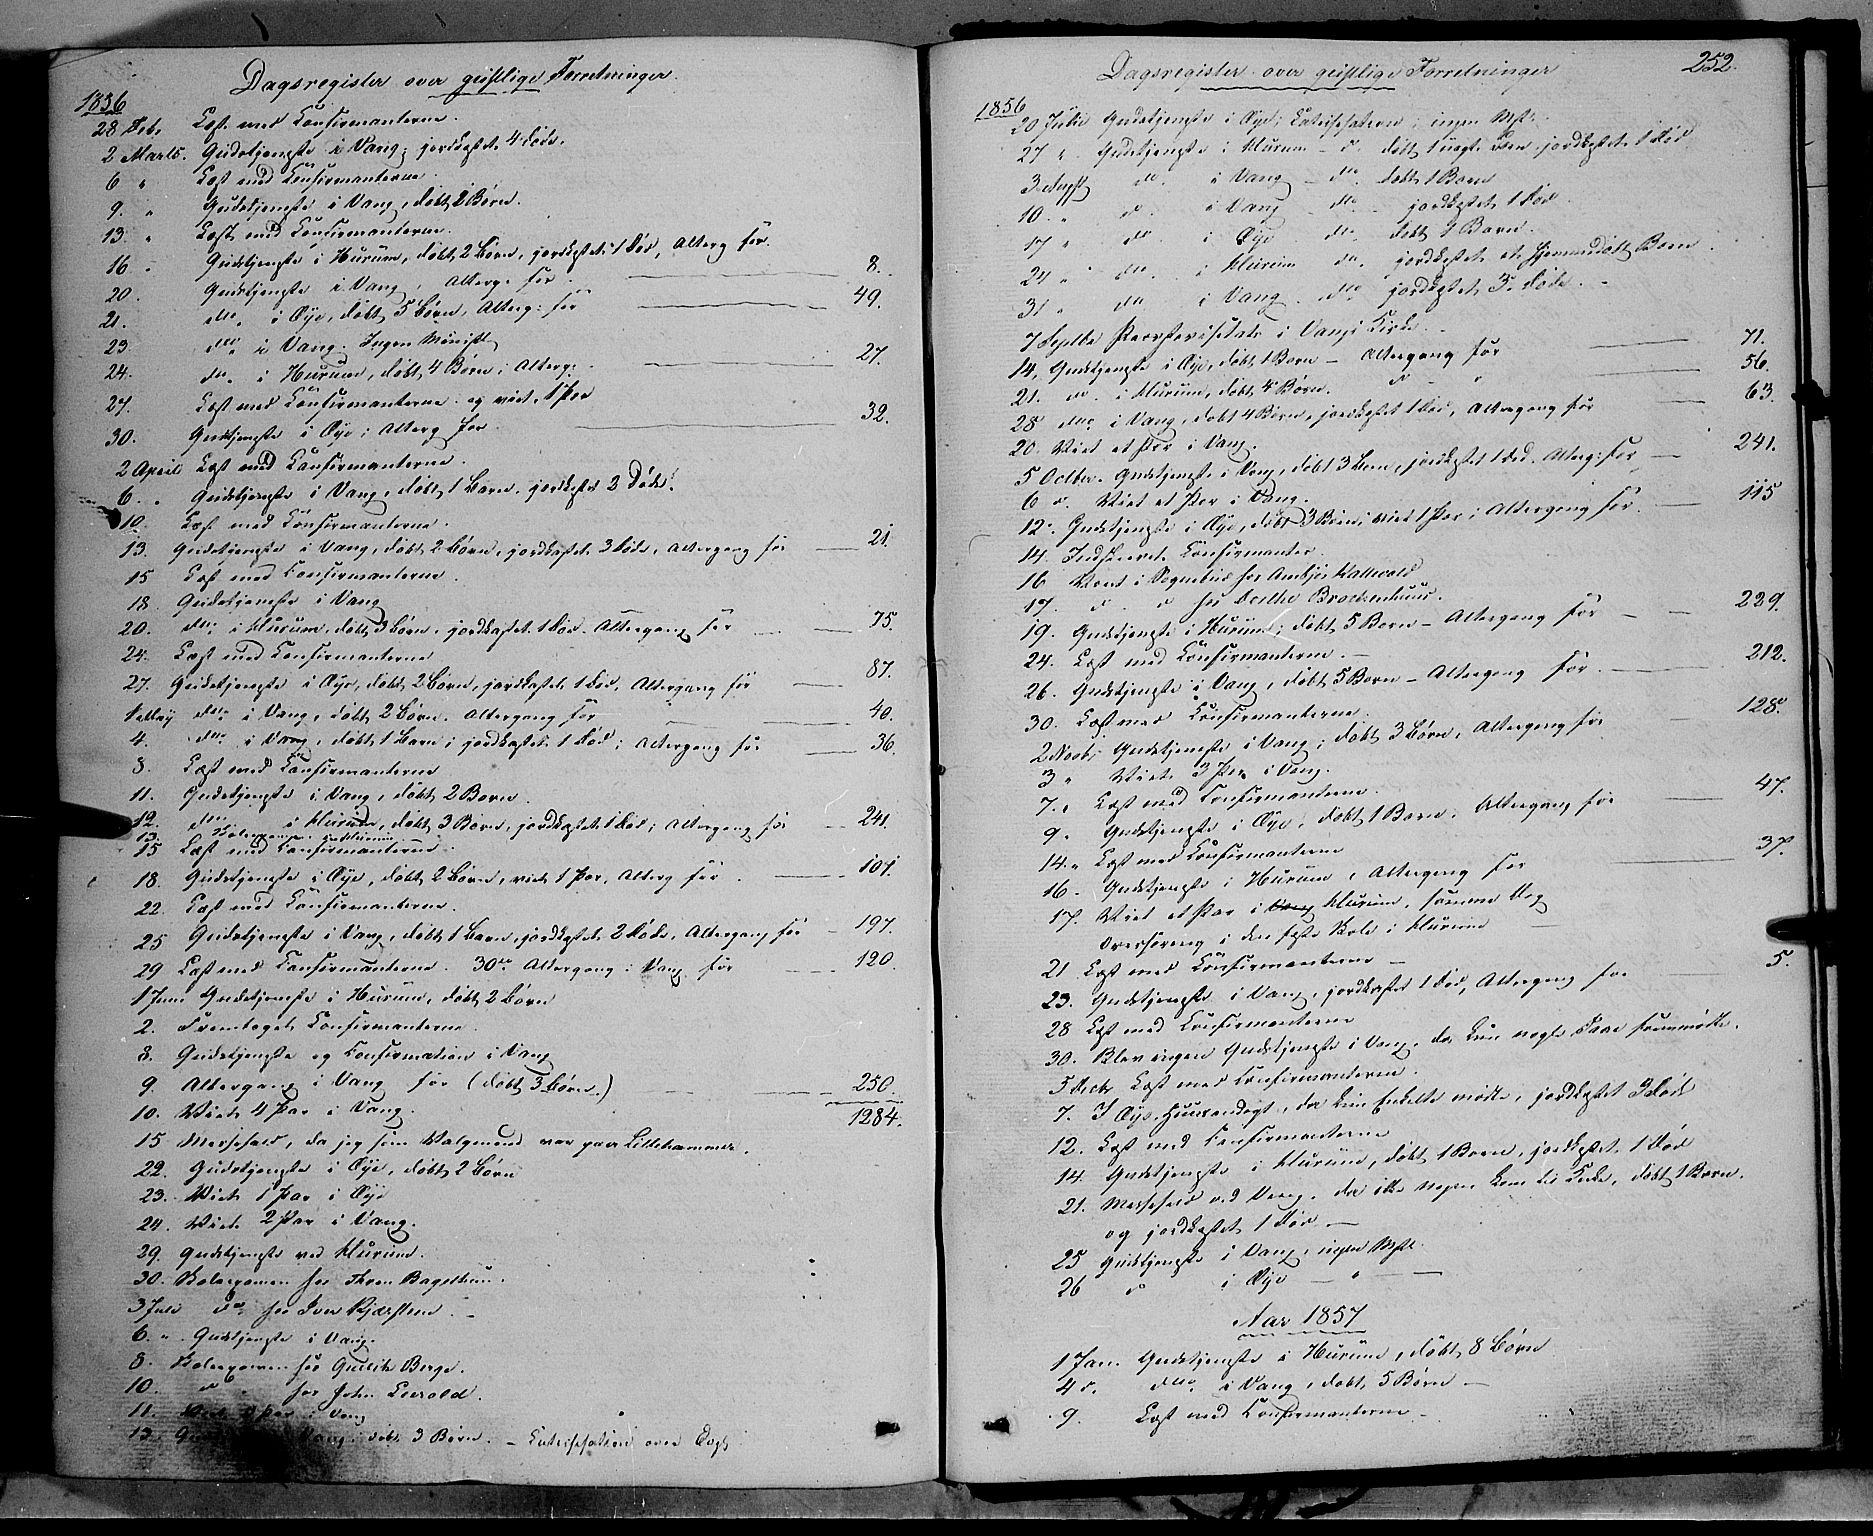 Dagsregister over geistlige Forretninger.
1856
28 Feb. Læst med Confirmanterne.
2 Marts. Gudstjeneste i Vang; jordkastet 4 Døde.
6 " Læst med Confirmanterne.
9. " Gudstjeneste i Vang, døbt 2 Børn.
13. " Læst med Confirmanterne.
16 " Gudstjeneste i Hurum, døbt 2 Børn, jordkastet 1 Død, Alterg. for 8.
20. Gudstjeneste i Vang, Alterg. for 49.
21. dto. i Øye, døbt 5 Børn, Alterg. for
23. dto. i Vang. Ingen Minist.
24. dto. i Hurum, døbt 4 Børn; Alterg. 27.
27. Læst med Confirmanterne og viet 1 Par
30. Gudstjeneste i Øye; Alterg. for 32.
2 April Læst med Confirmanterne.
6. " Gudstjeneste i Vang, døbt 1 Barn, jordkastet 2 Døde.
10. Læst med Confirmanterne.
13. Gudstjeneste i Vang, døbt 2 Børn, jordkastet 3 Døde, Altergang for 21.
15 Læst med Confirmanterne.
18. Gudstjeneste i Vang
20. dto. i Hurum, døbt 3 Børn, jordkastet 1 Død. Altergang for 75.
24. Læst med Confirmanterne
27. Gudstjeneste i Øye, døbt 2 Børn, jordkastet 1 Død, Altergang for 87.
1 May dto. i Vang, døbt 2 Børn. Altergang for 40.
4. dto. i Vang, døbt 1 Barn; jordkastet 1 Død; Altergang for 36.
8. Læst med Confirmanterne
11. Gudstjeneste i Vang, døbt 2 Børn.
12. dto. i Hurum, døbt 3 Børn, jordkastet 1 Død; Altergang for 241.
13. Skoleexamen i Hurum
15 Læst med Confirmanterne.
18. Gudstjeneste i Øye, døbt 2 Børn, viet 1 Par, Alterg. for 101.
22. Læst med Confirmanterne.
25 Gudstjeneste i Vang, døbt 1 Barn, jordkastet 2 Døde, Altergang for 197.
29 Læst med Confirmanterne. 30te Altergang i Vang for 120.
1 Juni Gudstjeneste i Hurum, døbt 2 Børn
2. Fremtaget Confirmanterne.
8. Gudstjeneste og Confirmation i Vang
9. Altergang i Vang for (døbt 3 Børn.) 250.
10. Viet 4 Par i Vang. 1284.
15 Messefald, da jeg som Valgmand var paa Lillehammer.
22. Gudstjeneste i Øye, døbt 2 Børn
23. Viet 1 Par i Øye
24. Viet 2 Par i Vang.
29. Gudstjeneste ved Hurum.
30. Skoleexamen hos Bagethun.
3 Juli do. hos Iver Kjærstein.
6. " Gudstjeneste i Vang.
8. Skoleexamen hos Gullik Berge.
10. do. hos John Leirold.
11. Viet Par i Vang
13. Vang; døbt 3 Børn. – Catechisation over
252.
Dagsregister over geistlige Forretninger
1856
20 Julii Gudstjeneste i Øye; Catechisation; ingen Mst.
27 " Gudstjeneste i Hurum – d. døbt 1 jordkastet 1 Død
3 August do. i Vang – do. døbt 1 Barn
10. " d. i Vang – do. – jordkastet 1 Død.
17 " do. i Øye do. døbt 1 Barn.
24 " do. i Hurum do. jordkastet et hjemmedøbt Barn.
31 " do i Vang. do. jordkastet 3 Døde.
7 Septbr Provstevisitats i Vangs Kirke.
14. Gudstjeneste i Øye, døbt 1 Barn – Altergang for 71.
21. do. i Hurum, døbt 4 Børn. d – " 56.
28 dto i Vang, døbt 4 Børn, jordkastet 1 Død, Altergang for 63.
20. Viet et Par i Vang.
5 Octber. Gudstjeneste i Vang, døbt 3 Børn, jordkastet 1 Død. Alterg. for 241.
6 d. Viet et Par i Vang.
12. Gudstjeneste i Øye, døbt 3 Børn; viet 1 Par; Altergang for 115
14. Indskrevet Confirmanter.
16 Været i Sognebud hos
17. d. d hos Brockenhuus.
19. Gudstjeneste i Hurum; døbt 5 Børn – Altergang for 229.
24. Læst med Confirmanterne.
26. Gudstjeneste i Vang, døbt 5 Børn – Altergang for 212.
30. Læst med Confirmanterne.
2 Novbr Gudstjeneste i Vang; døbt 3 Børn, Altergang for 128.
3 " Viet 3 Par i Vang.
7. " Læst med Confirmanterne.
9 " Gudstjeneste i Øye, døbt 1 Barn. Altergang for 47.
14. " Læst med Confirmanterne
16. Gudstjeneste i Hurum, Altergang for 37.
17. Viet et Par i Vang Hurum, samme Dag
i den faste Skole i Hurum
21. Læst med Confirmanterne –
23. Gudstjeneste i Vang, jordkastet 1 Død, Altergang for 5.
28 Læst med Confirmanterne
30. Blev ingen Gudstjeneste i Vang, da kun nogle Faae fremmødte.
5 Decbr Læst med Confirmanterne.
7. I Øye da kun Enkelte mødte, jordkastet 3 Døde
12. Læst med Confirmanterne
14. Gudstjeneste i Hurum, døbt 1 Barn, jordkastet 1 Død
21. Messefald ved Vang, da ikke nogen kom til Kirke, døbt 1 Barn.
og jordkastet 1 Død –
25 Gudstjeneste i Vang, ingen Mst.
26 d i Øye – " –
Aar 1857
1 Jan. Gudstjeneste i Hurum, døbt 8 Børn
4 d. dto. i Vang, døbt 5 Børn –
9. Læst med Confirmanterne –